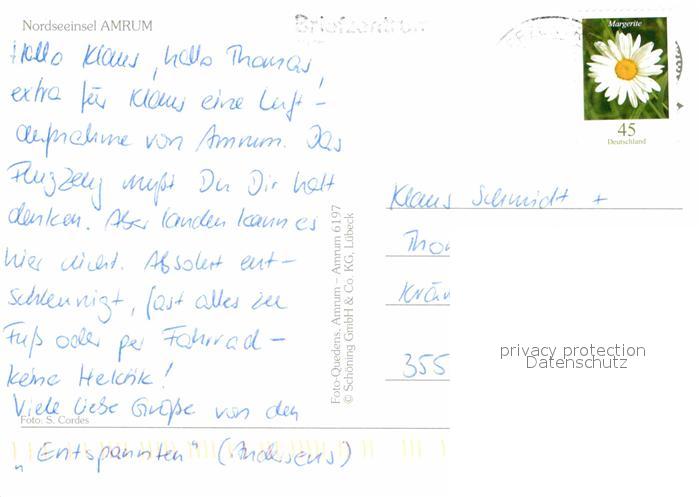 Nordseeinsel AMRUM
Briefzentrum
Hallo Klaus, hallo Thomas!
extra für Klaus eine Luft-
aufnahme von Amrum. Das
Flugzeug mußt Du Dir halt
denken. Aber landen kann es
hier nicht. Absolut ent-
schleunigt, fast alles zu
Fuß oder per Fahrrad –
keine Hektik!
Viele liebe Grüße von den
„Entspannten“ (Andersens)
Foto: S. Cordes
Foto-Quedens, Amrum – Amrum 6197
© Schöning GmbH & Co. KG, Lübeck
Margerite
45
Deutschland
Klaus Schmidt +
Tho
Krä
355
privacy protection
Datenschutz